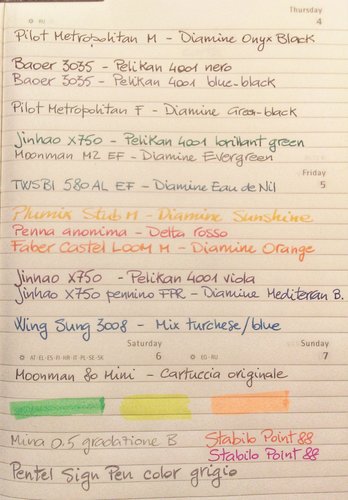 Thursday
4
RU
Pilot Metropolitan M - Diamine Onyx Black
Baoer 3035 - Pelikan 4001 nero
Baoer 3035 - Pelikan 4001 blue-black
Pilot Metropolitan F - Diamine Green-black
Jinhao X750 - Pelikan 4001 brillant green
Moonman M2 EF - Diamine Evergreen
Friday
5
TWSBI 580 AL EF - Diamine Eau de Nil
Plumix Stub M - Diamine Sunshine
Penna anonima - Delta rosso
Faber Castel LOOM M - Diamine Orange
Jinhao X750 - Pelikan 4001 viola
Jinhao X750 pennino FPR - Diamine Mediteran B.
Wing Sung 3008 - Mix turchese/blue
Saturday
Sunday
AT-EL-ES-FI-HR-IT-PL-SE-SK
6
EG-RU
7
Moonman 80 Mini - Cartuccia originale
Mina 0.5 gradazione B
Stabilo Point 88
Stabilo Point 88
Pentel Sign Pen color grigio